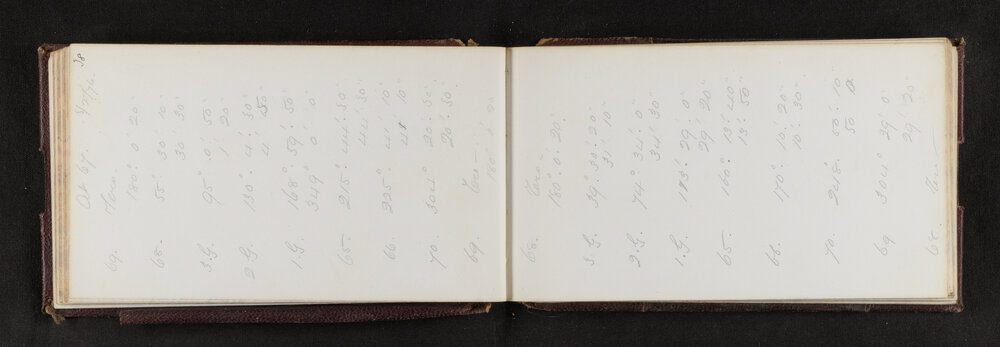 38
At 67. 4/21/76.
69. Zero. 180° 0' 20"
68. 55° 30' 10"
30' 30"
3.G. 95° 0' 50"
1' 20"
2.G. 130° 4' 30"
4' 50"
1.G. 168° 59' 50"
349° 0' 0"
65. 215° 44' 30"
44' 30"
66. 225° 41' 10"
41 10"
70. 304° 20' 30"
20' 30"
69. Zero
180° 0' 20"
68. Zero.
180° 0' 20"
3.G. 39° 30' 20"
30' 10"
2.G. 74° 34' 0"
34' 30"
1.G. 113° 29' 0"
29' 20"
65. 160° 13' 40"
13' 50"
66. 170° 10' 20"
10' 30"
70. 248° 50' 10"
50'
69 304° 29' 0"
29' 20"
68. Zero